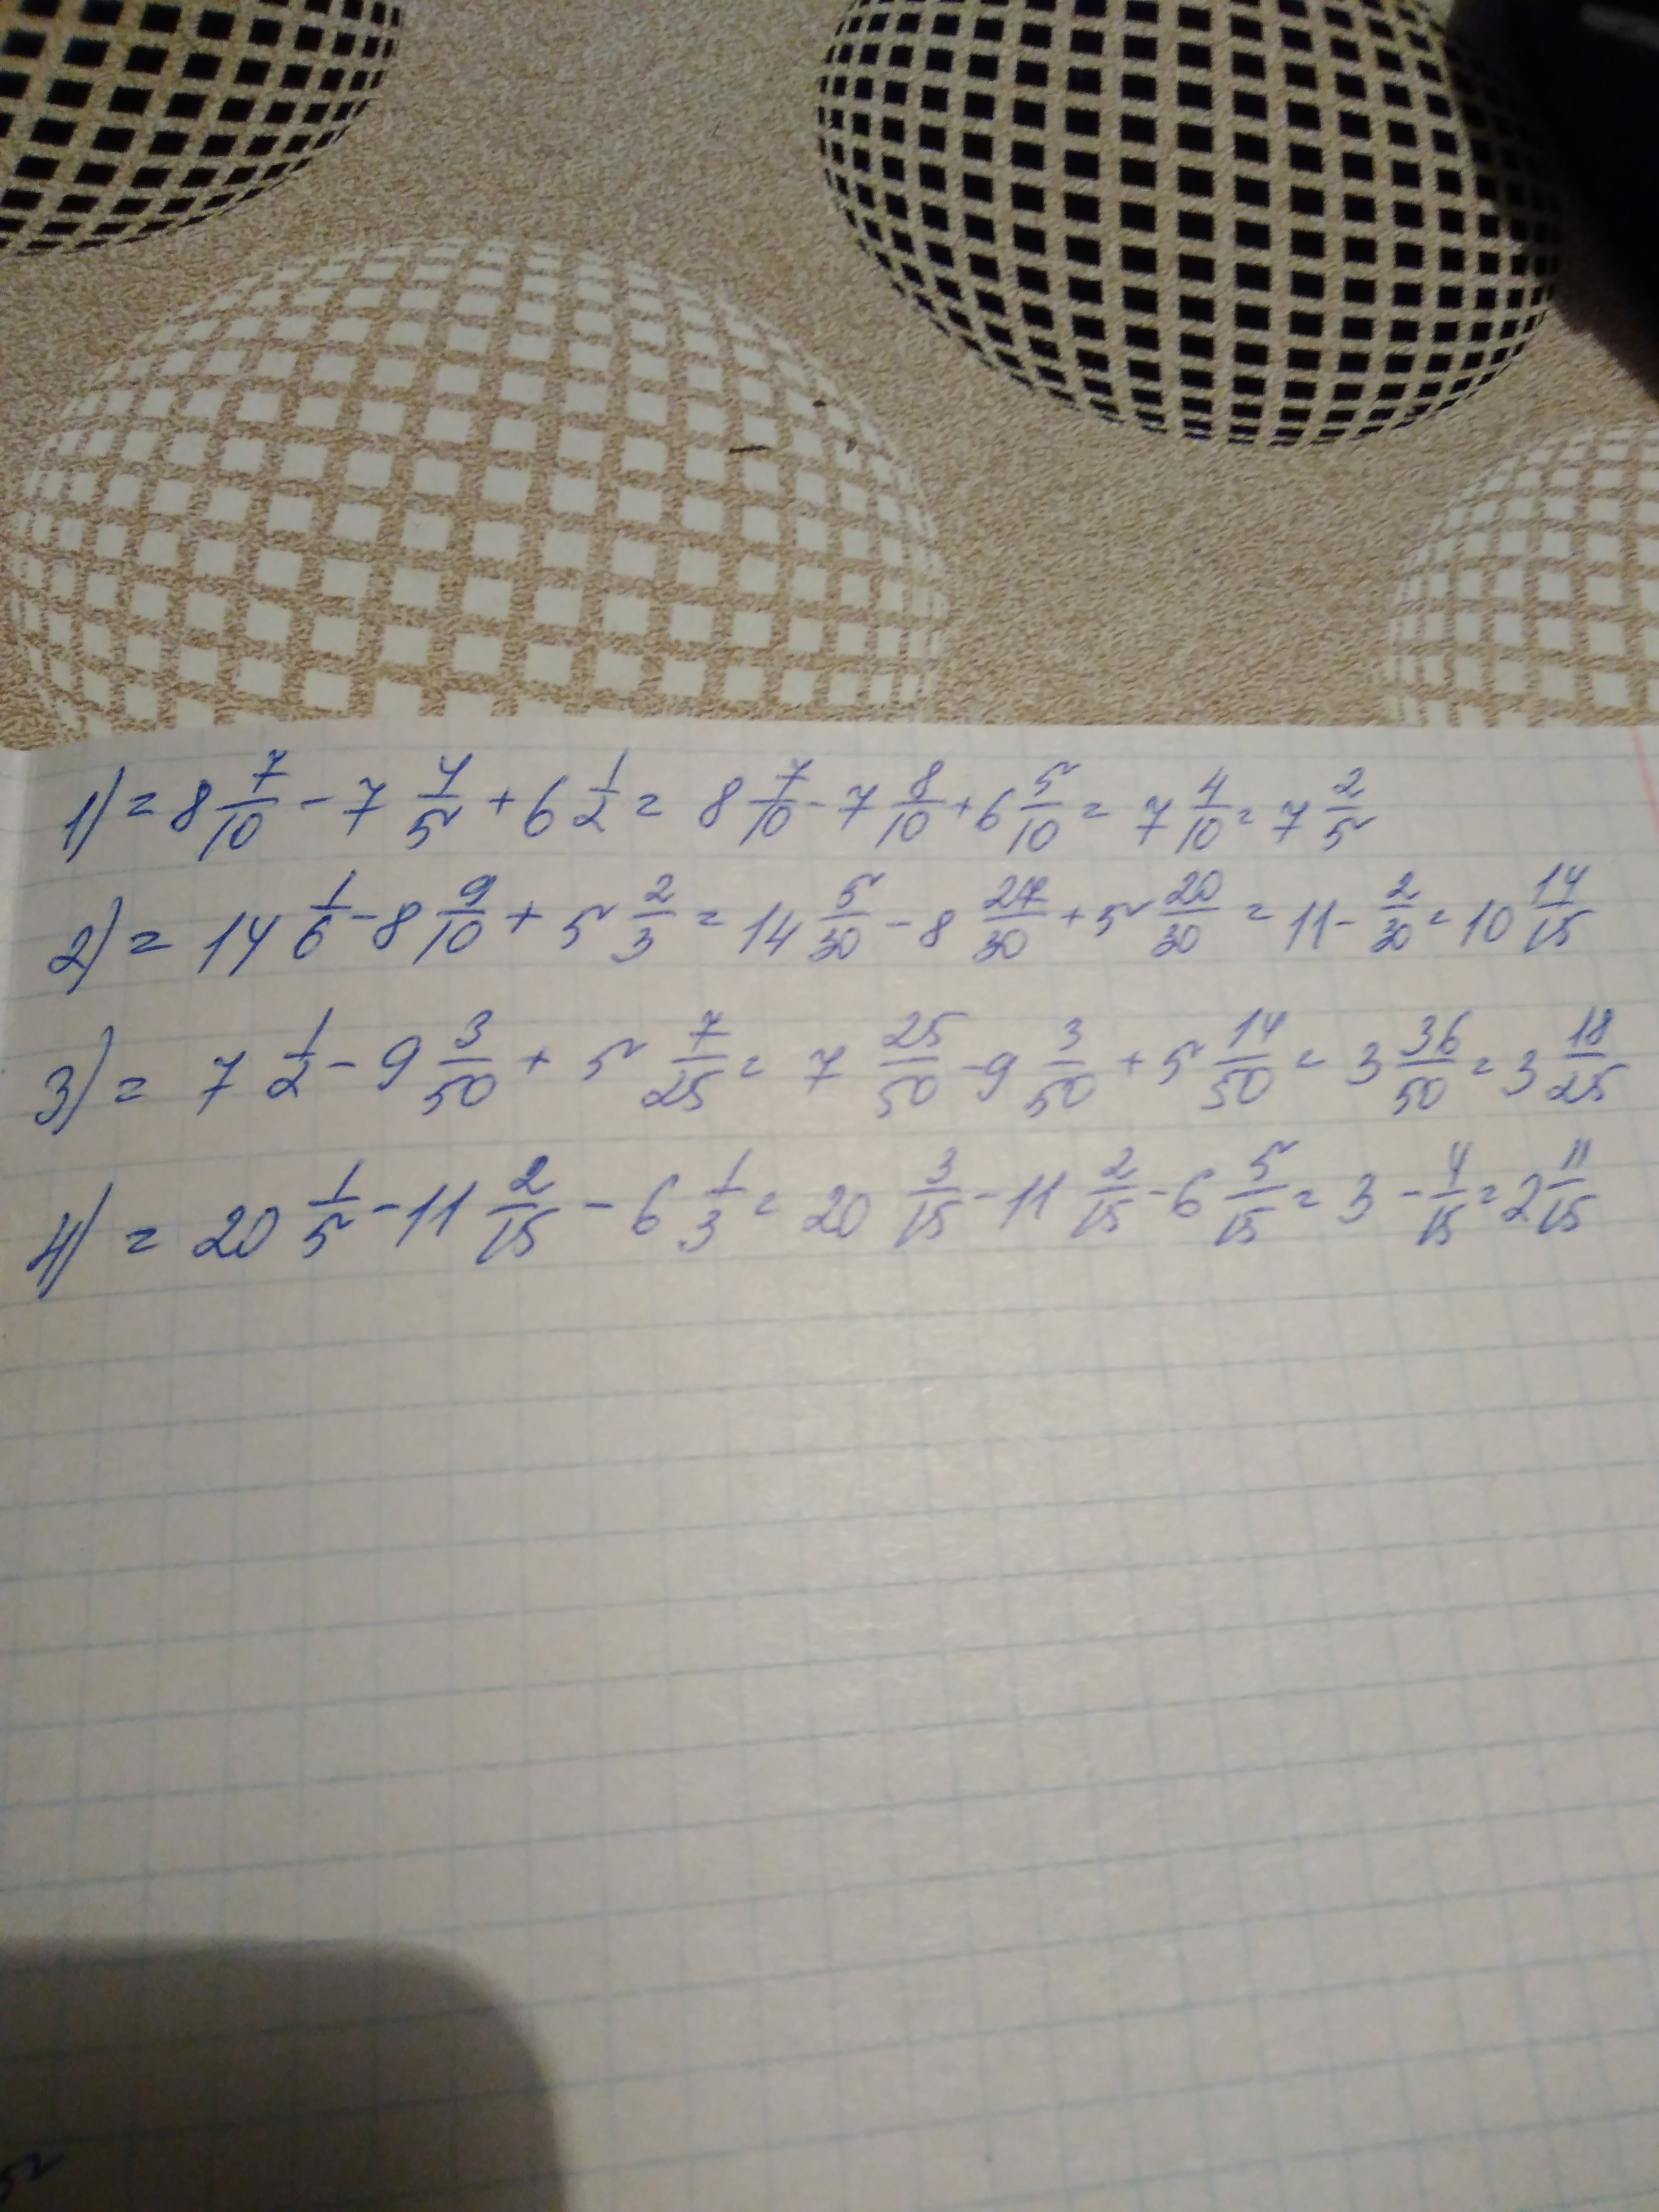 1) = 8 7/10 - 7 4/5 + 6 1/2 = 8 7/10 - 7 8/10 + 6 5/10 = 7 4/10 = 7 2/5
2) = 14 1/6 - 8 9/10 + 5 2/3 = 14 5/30 - 8 27/30 + 5 20/30 = 11 - 2/30 = 10 14/15
3) = 7 1/2 - 9 3/50 + 5 7/25 = 7 25/50 - 9 3/50 + 5 14/50 = 3 36/50 = 3 18/25
4) = 20 1/5 - 11 2/15 - 6 1/3 = 20 3/15 - 11 2/15 - 6 5/15 = 3 - 4/15 = 2 11/15